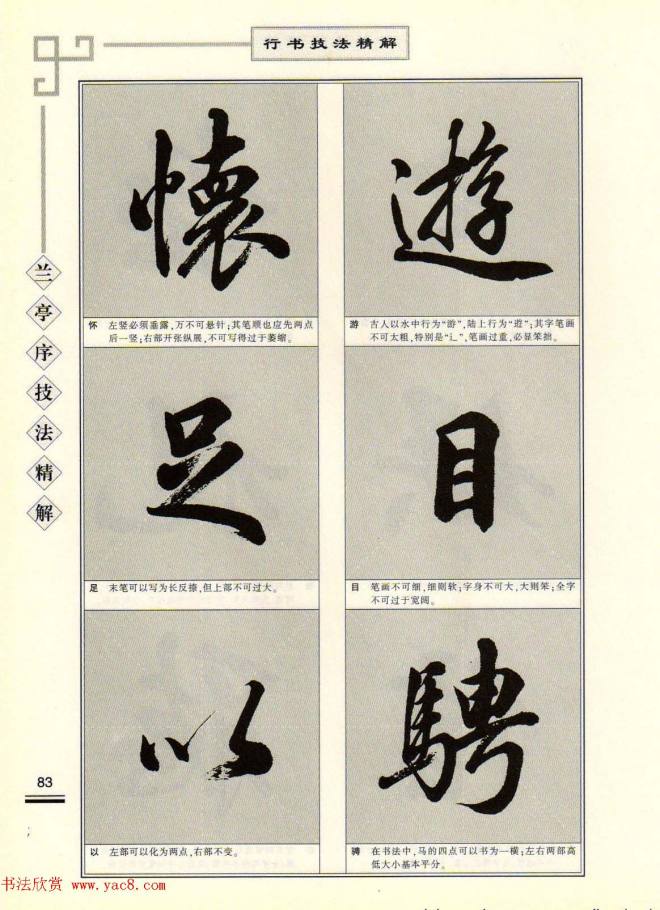 行书技法精解
兰亭序技法精解
遊
游 古人以水中行为“游”,陆上行为“遊”;其字笔画
不可太粗,特别是“辶”,笔画过重,必显笨拙。
目
目 笔画不可细,细则软;字身不可大,大则笨;全字
不可过于宽阔。
騁
骋 在书法中,马的四点可以书为一横;左右两部高
低大小基本平分。
懷
怀 左竖必须垂露,万不可悬针;其笔顺也应先两点
后一竖;右部开张纵展,不可写得过于萎缩。
足
足 末笔可以写为长反捺,但上部不可过大。
以
以 左部可以化为两点,右部不变。
83
书法欣赏 www.yac8.com